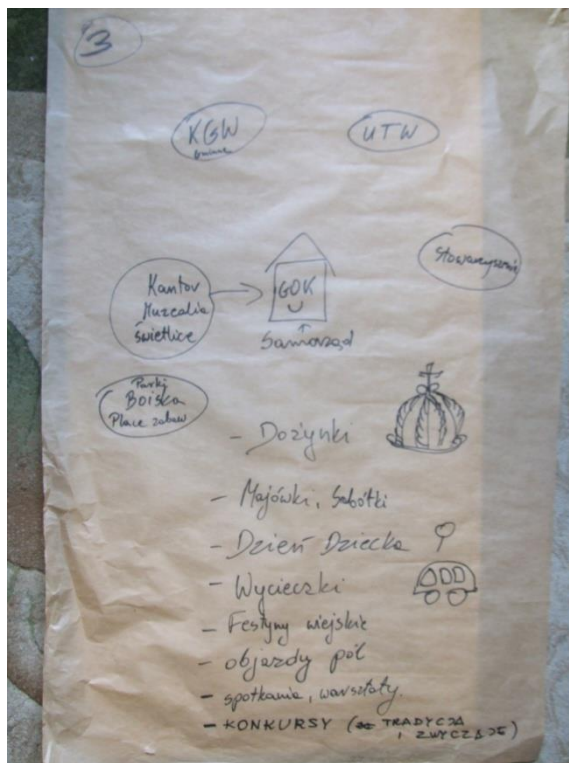 3
KGW
UTW
Stowarzyszenie
Kantor
Muzealia
świetlice
GOK
Samorząd
Parki
Boiska
Place zabaw
- Dożynki
- Majówki, Sobótki
- Dzień Dziecka
- Wycieczki
- Festyny wiejskie
- objazdy pól
- spotkania, warsztaty.
- KONKURSY (TRADYCJA
I ZWYCZAJE)